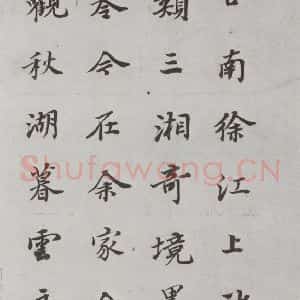 南徐江上
類三湘奇境
卷今在余家
觀秋湖暮雲
Shufawang.CN